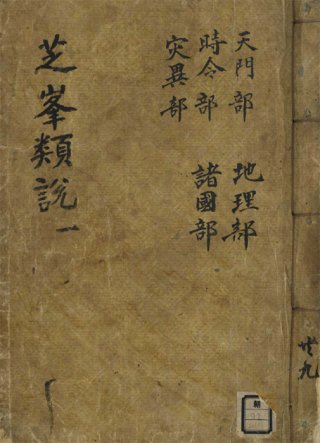 芝峯類說 一
天門部
時令部
災異部
地理部
諸國部
共九
朝